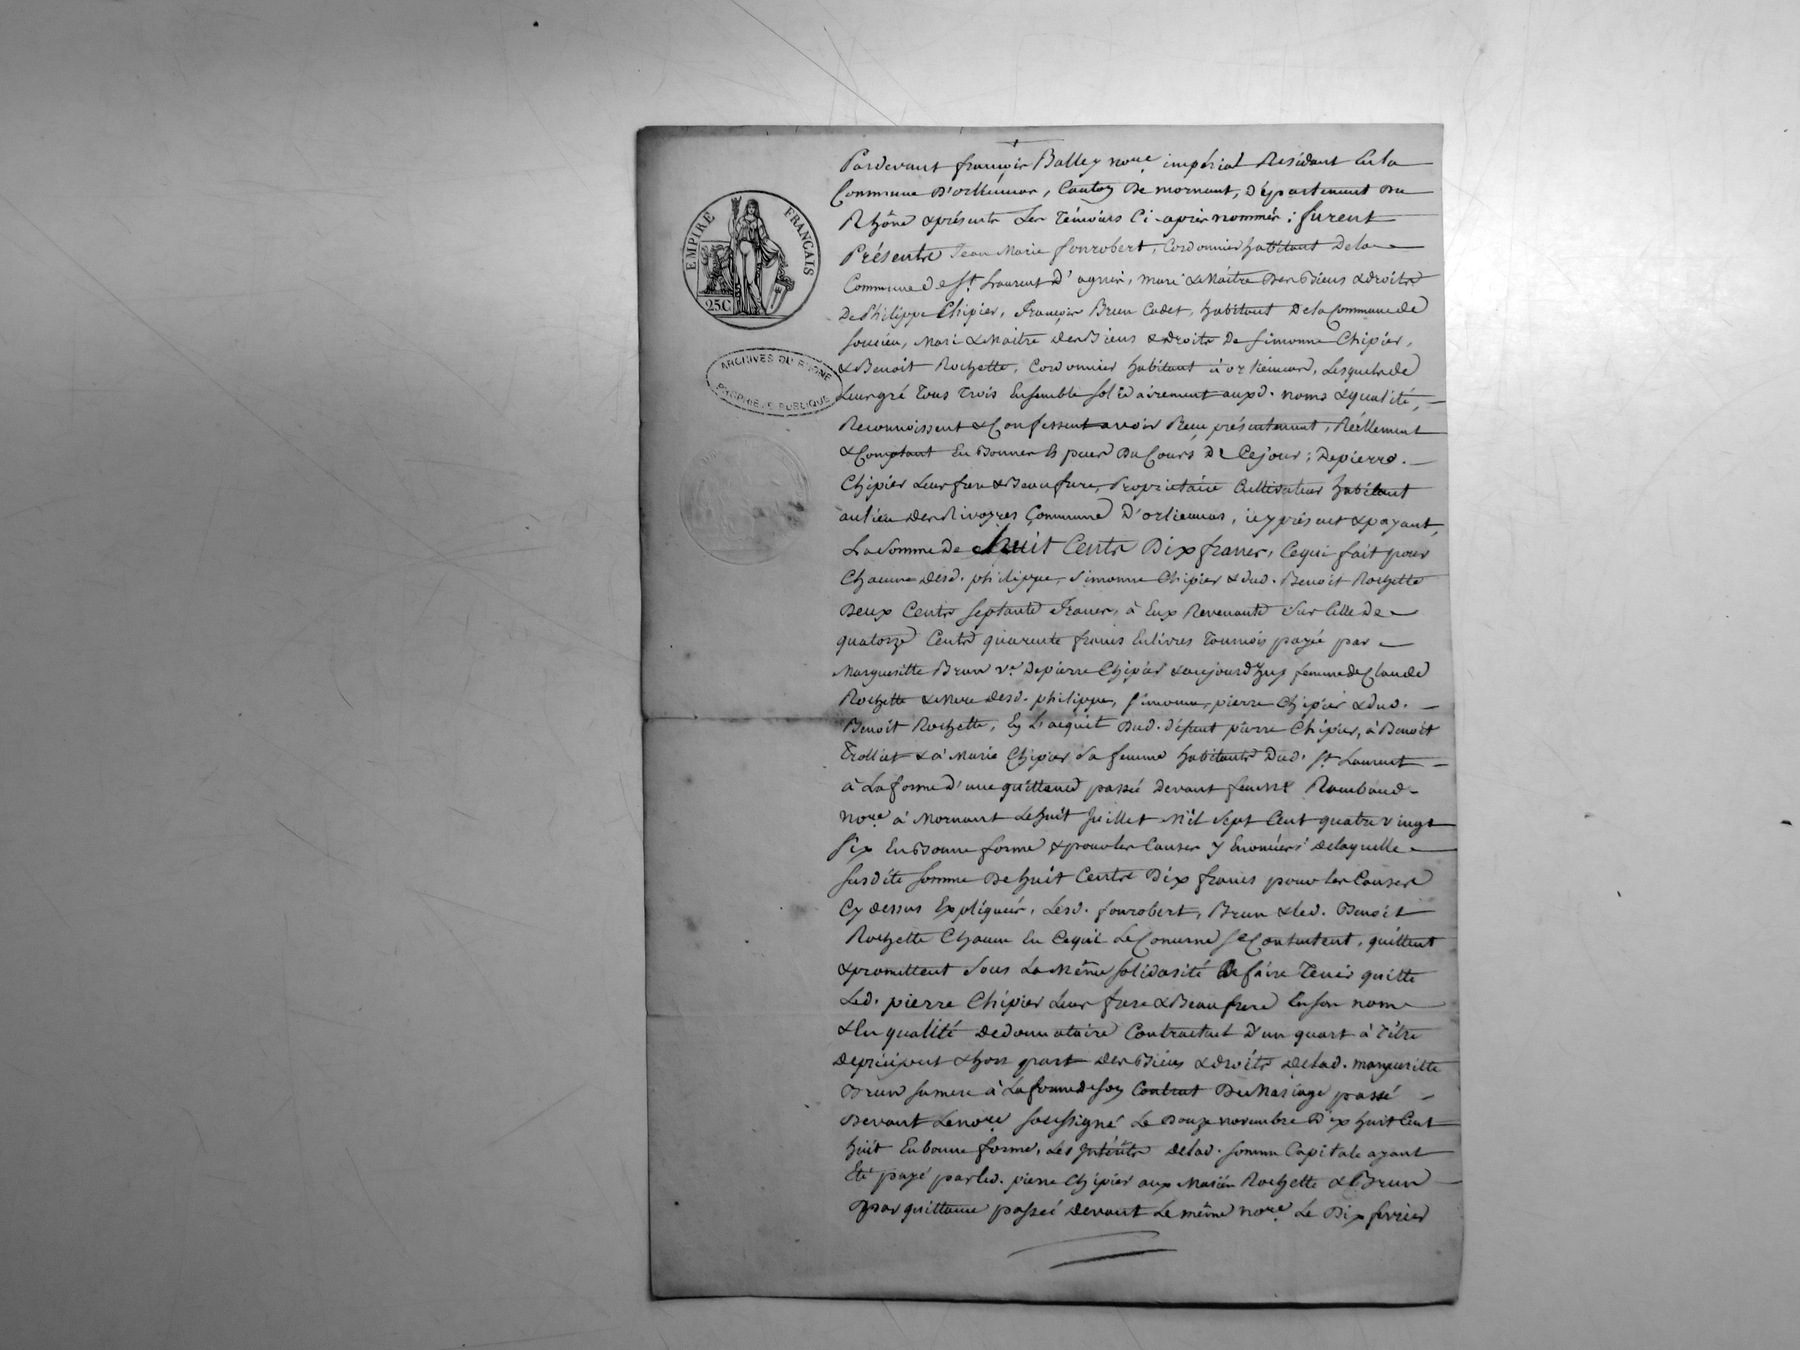 EMPIRE FRANÇAIS
25C
ARCHIVES DU RHONE
PROPRIÉTÉ PUBLIQUE
Pardevant françois Balley no.re impérial Résidant en la
Commune D'orliénas, Canton De mornant, Département du
Rhône & présents Les témoins Ci-après nommés; furent
Présents Jean Marie fonrobert, Cordonnier habitant De la
Commune de St. Laurent D'agnis, mari & Maitre Des Biens & droits
De Philippe Chipier, françois Brun Cadet, habitant De la Commune de
Soucieu, Mari & Maitre des Biens & droits De Simonne Chipier,
& Benoit Rochette, Cordonnier habitant à orlienas, Lesquels de
Leur gré tous trois Ensemble solidairement aux d. noms & qualité,
Reconnoissent & Confessent avoir Reçu présentement, Réellement
& Comptant En Bonnes Espèces Du Cours De Cejour; De pierre
Chipier Leur frere & Beaufrere, Proprietaire Cultivateur habitant
au lieu des Rivoyres Commune D'orlienas, icy présent & payant
La Somme De huit Cents Dix francs, Ce qui fait pour
Chacune desd. philippe, Simonne Chipier & dud. Benoit Rochette
Deux Cents Septante francs, à Eux Revenants Sur Celle De
quatorze Cents quarente francs En livres Tournois payée par
Margueritte Brun ve. De pierre Chipier & aujourd'huy femme de Claude
Rochette & Mere desd. philippe, Simonne, pierre Chipier & dud.
Benoit Rochette, En L'acquit Dud. défunt pierre Chipier, à Benoit
Trolliet & à Marie Chipier Sa femme habitants Dud. St. Laurent
à La forme d'une quittance passée Devant feu Me Rambaud
no.re à Mornant Le huit Juillet Mil Sept Cent quatre vingt
Six En Bonne forme & pour les Causes y Enoncées De laquelle
Susdite Somme De huit Cents Dix francs pour les Causes
Cy dessus Expliquées, Lesd. fonrobert, Brun & led. Benoit
Rochette Chacun En Ce qui Le Concerne Se Contentent, quittent
& promettent Sous La Même Solidarité De faire tenir quitte
Led. pierre Chipier Leur frere & Beaufrere En son nom
& En qualité De donnataire Contractuel D'un quart à titre
De préciput & hors part Des Biens & droits De lad. marguerite
Brun Sa mere à La forme de Son Contrat De Mariage passé
Devant Le no.re Soussigné Le Douze novembre Dix huit Cent
huit En bonne forme, Les Intérêts De lad. Somme Capitale ayant
Eté payé par led. pierre Chipier aux Mariés Rochette & Brun
par quittance passée Devant Le même no.re Le Dix fevrier